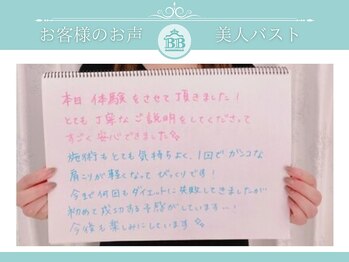 お客様のお声
BB
美人バスト
本日体験をさせて頂きました!
とても丁寧なご説明をしてくださって
すごく安心できました
施術もとても気持ちよく、1回でガンコな
肩こりが軽くなってびっくりです!
今まで何回もダイエットに失敗してきましたが
初めて成功する予感がしています…!
今後も楽しみにしています